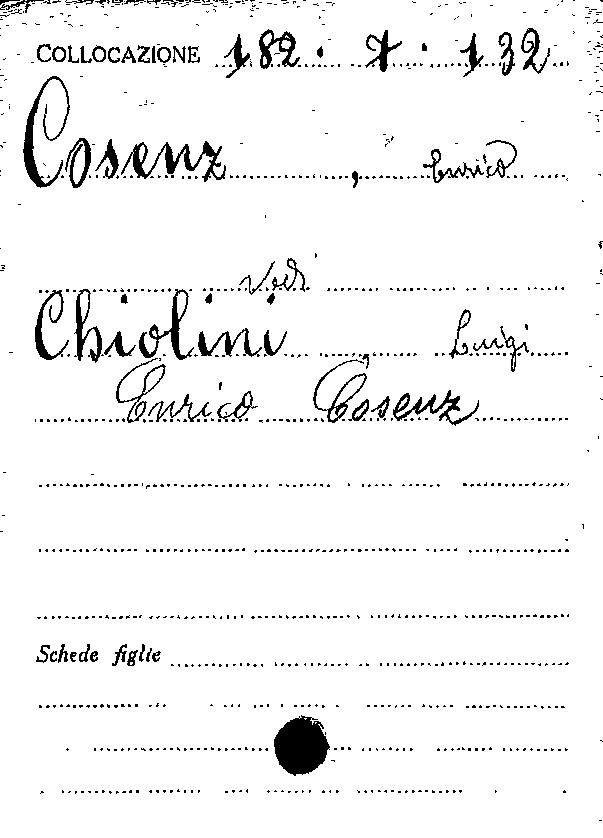 COLLOCAZIONE 182. 7. 132
Cosenz, Enrico
Vedi
Chiolini, Luigi
Enrico Cosenz
Schede figlie